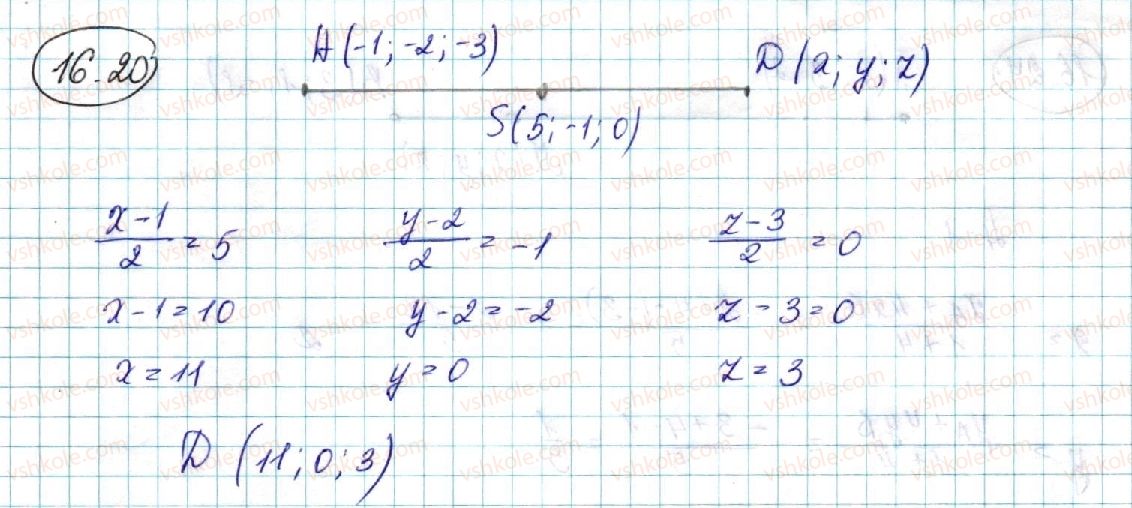 16.20
A(-1; -2; -3)
D(x; y; z)
S(5; -1; 0)
(x-1)/2 = 5    (y-2)/2 = -1    (z-3)/2 = 0
x-1=10    y-2=-2    z-3=0
x=11    y=0    z=3
D (11; 0; 3)
vshkole.com